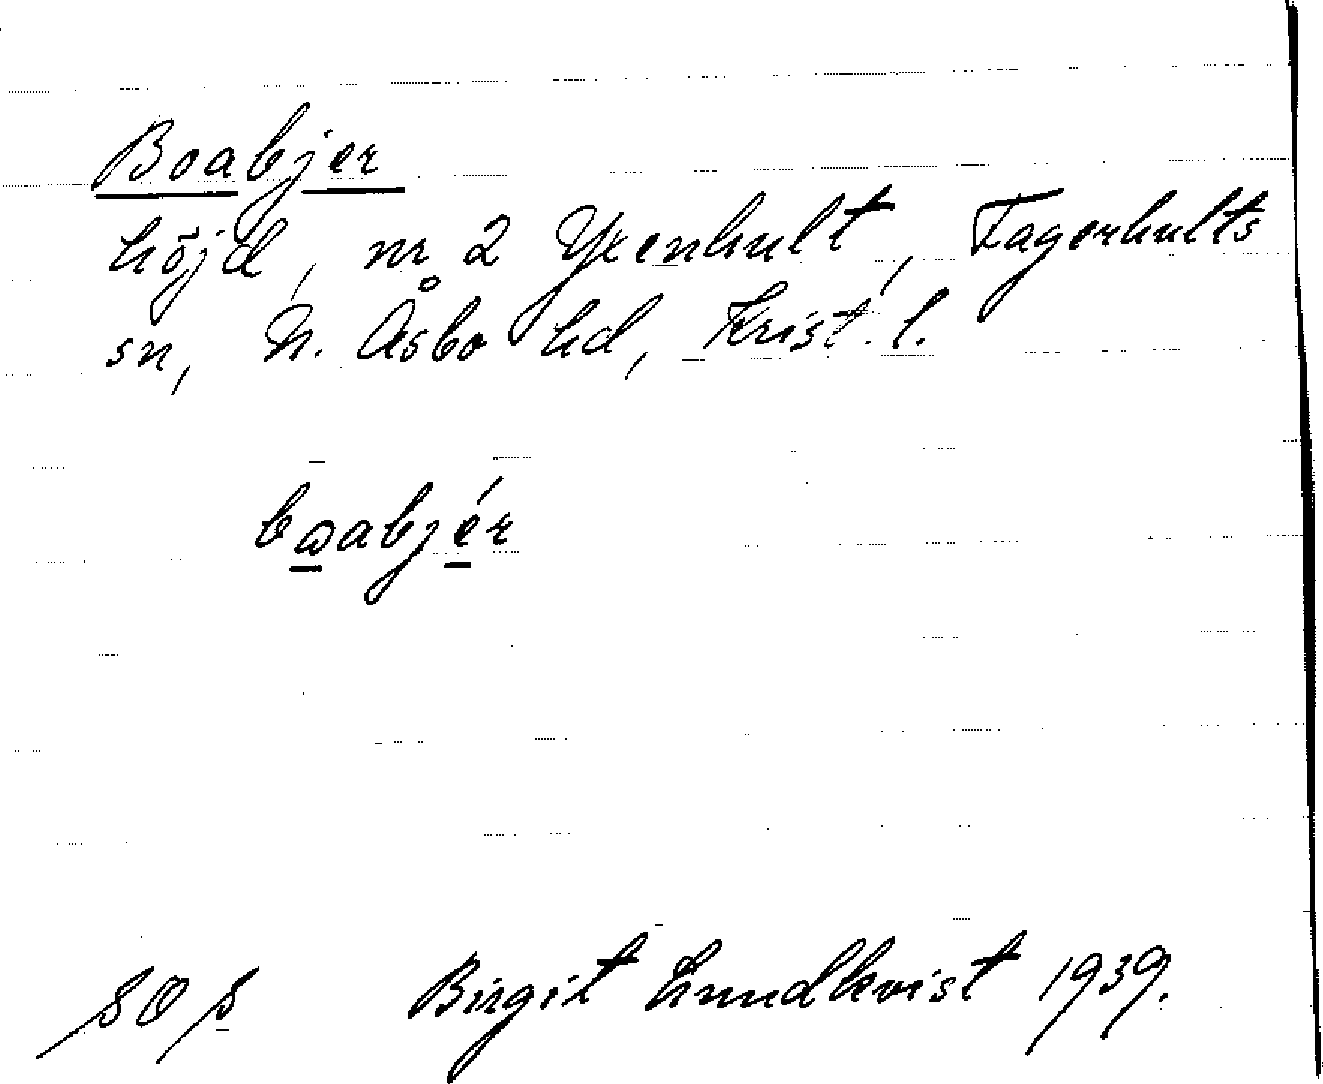 Boabjer
höjd, nr 2 Yxenhult, Fagerhults
sn, N. Åsbo hd, Krist. l.
boabjér
SOS Birgit Lundkvist 1939.